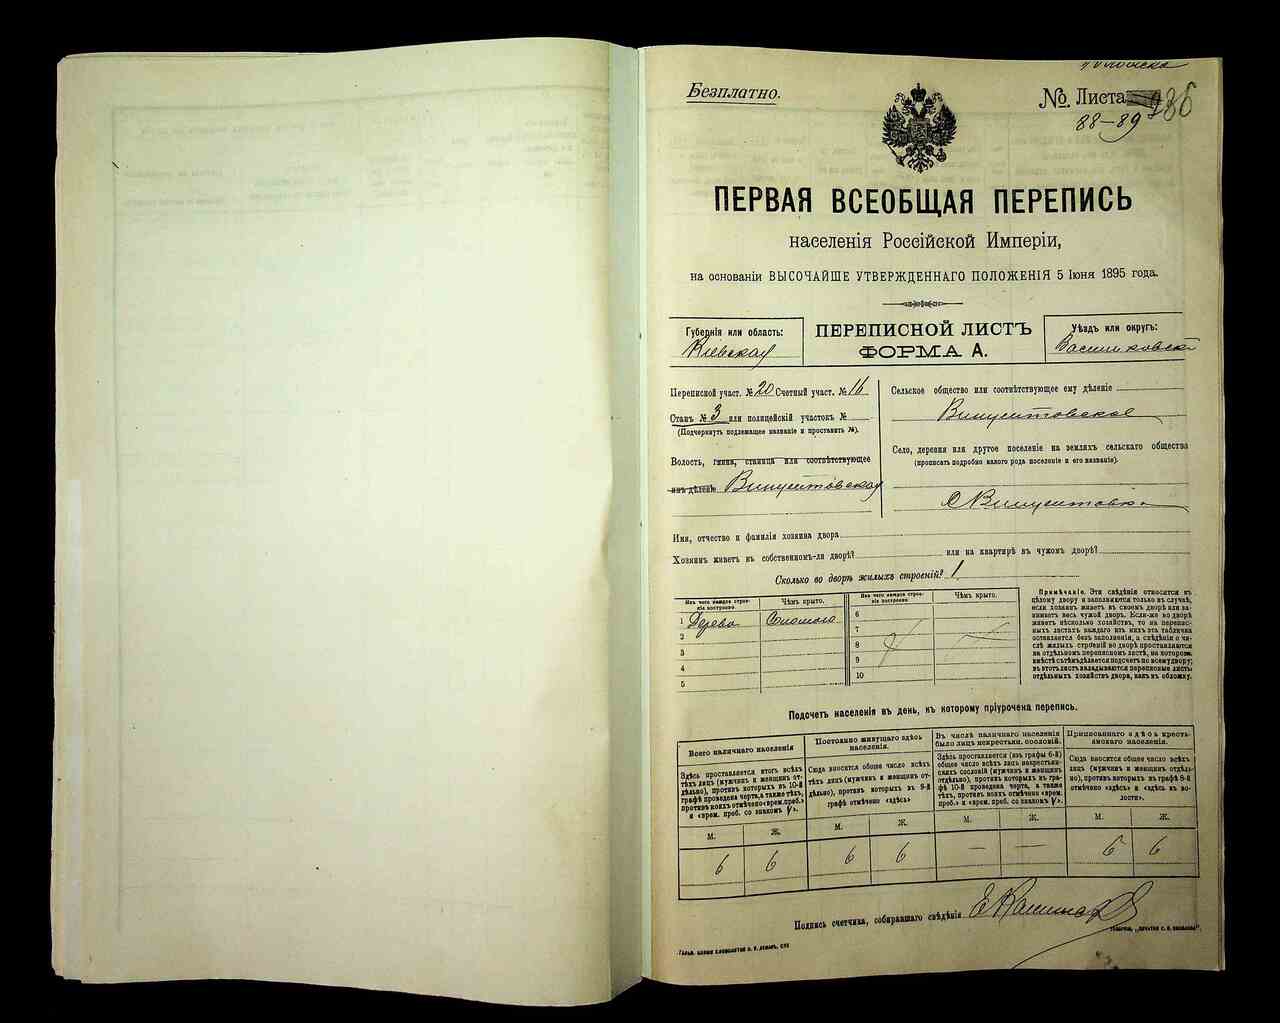 Безплатно.
№ Листа 236
88–89
ПЕРВАЯ ВСЕОБЩАЯ ПЕРЕПИСЬ
населенія Россійской Имперіи,
на основаніи ВЫСОЧАЙШЕ УТВЕРЖДЕННАГО ПОЛОЖЕНІЯ 5 Іюня 1895 года.
Губернія или область:
Кіевская
ПЕРЕПИСНОЙ ЛИСТЪ
ФОРМА А.
Уѣздъ или округъ:
Васильковскі
Переписной участ. № 20 Счетный участ. № 16
Станъ № 3 или полицейскій участокъ №
(Подчеркнуть подлежащее названіе и проставить №).
Волость, гмина, станица или соотвѣтствующее
имъ дѣленіе Винцентовская
Сельское общество или соотвѣтствующее ему дѣленіе
Винцентовское
Село, деревня или другое поселеніе на земляхъ сельскаго общества
(прописать подробно какого рода поселеніе и его названіе).
С. Винцентовка
Имя, отчество и фамилія хозяина двора
Хозяинъ живетъ въ собственномъ-ли дворѣ? или на квартирѣ въ чужомъ дворѣ?
Сколько во дворѣ жилыхъ строеній? 1
Изъ чего каждое строеніе построено.
Чѣмъ крыто.
Изъ чего каждое строеніе построено.
Чѣмъ крыто.
1 Дерева Соломою
2
3
4
5
6
7
8
9
10
Примѣчаніе. Эти свѣдѣнія относятся къ
цѣлому двору и заполняются только въ случаѣ,
если хозяинъ живетъ въ своемъ дворѣ или за-
нимаетъ весь чужой дворъ. Если-же во дворѣ
живетъ нѣсколько хозяйствъ, то на перепис-
ныхъ листахъ каждаго изъ нихъ эта табличка
оставляется безъ заполненія, а свѣдѣнія о чи-
слѣ жилыхъ строеній во дворѣ проставляются
на отдѣльномъ переписномъ листѣ, на которомъ
вмѣстѣ съ тѣмъ дѣлается подсчетъ по всему двору;
въ этотъ листъ вкладываются переписные листы
отдѣльныхъ хозяйствъ двора, какъ въ обложку.
Подсчетъ населенія въ день, къ которому пріурочена перепись.
Всего наличнаго населенія
Здѣсь проставляется итогъ всѣхъ
тѣхъ лицъ (мужчинъ и женщинъ от-
дѣльно), противъ которыхъ въ 10-й
графѣ проведена черта, а также тѣхъ,
противъ коихъ отмѣчено «врем. преб.»
и «врем. преб. со знакомъ V».
Постоянно живущаго здѣсь
населенія.
Сюда вносится общее число всѣхъ
тѣхъ лицъ (мужчинъ и женщинъ от-
дѣльно), противъ которыхъ въ 9-й
графѣ отмѣчено «здѣсь»
Въ числѣ наличнаго населенія
было лицъ некрестьян. сословій.
Здѣсь проставляется (изъ графы 6-й)
общее число всѣхъ лицъ некрестьян-
скихъ сословій (мужчинъ и женщинъ
отдѣльно), противъ которыхъ въ гра-
фѣ 10-й проведена черта, а также
тѣхъ, противъ коихъ отмѣчено «врем.
преб.» и «врем. преб. со знакомъ V».
Приписаннаго здѣсь кресть-
янскаго населенія.
Сюда вносится общее число всѣхъ
лицъ (мужчинъ и женщинъ отдѣль-
но), противъ которыхъ въ графѣ 8-й
отмѣчено «здѣсь» и «здѣсь въ во-
лости».
М. Ж. М. Ж. М. Ж. М. Ж.
6 6 6 6 — — 6 6
Подпись счетчика, собиравшаго свѣдѣнія